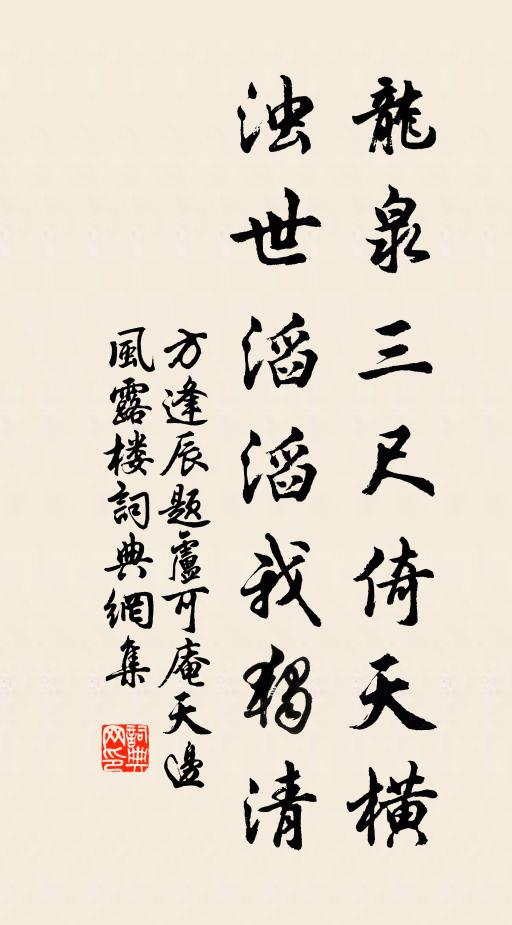 龍泉三尺倚天橫
浊世滔滔我獨清
方逢辰题盧可庵天邊
風露楼詞典網集
詞典网印